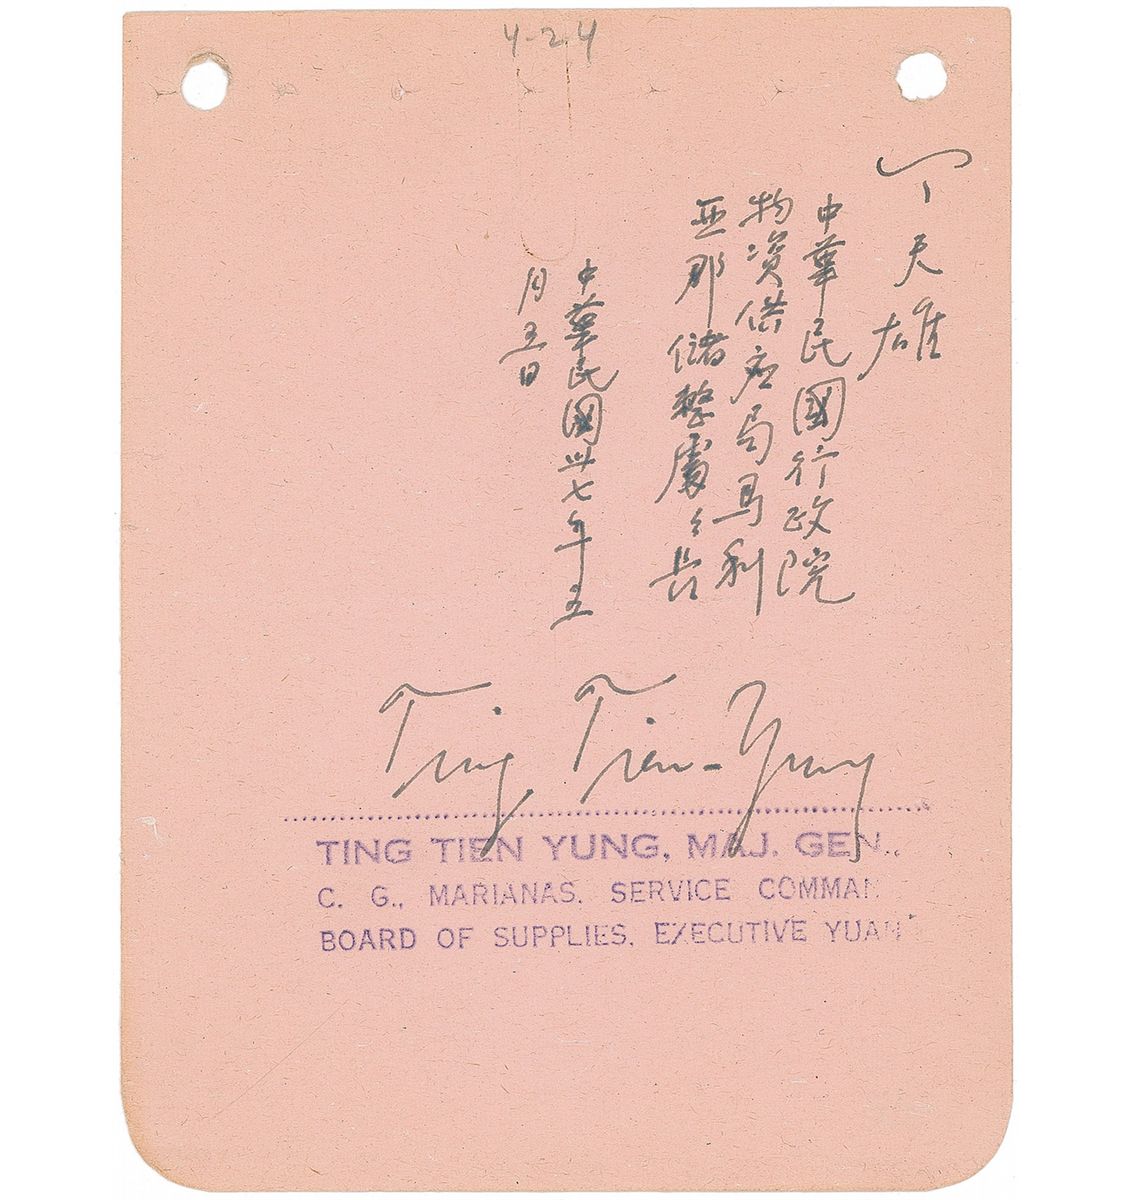 4-24
丁天雄
中華民國行政院
物資供应局馬利
亞那儲整處々長
中華民國卅七年五
月五日
Ting Tien-Yung
TING TIEN YUNG, MAJ. GEN.,
C. G., MARIANAS. SERVICE COMMA
BOARD OF SUPPLIES, EXECUTIVE YUAN